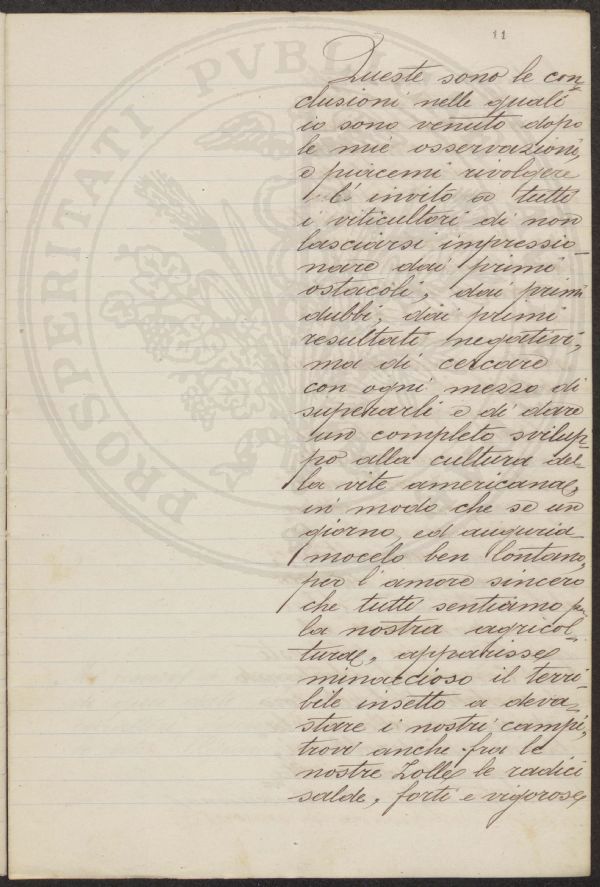 11
Queste sono le con-
clusioni nelle quali
io sono venuto dopo
le mie osservazioni,
e piacemi rivolgere
l' invito a tutti
i viticultori di non
lasciarsi impressio-
nare dai primi
ostacoli, dai primi
dubbi, dai primi
resultati negativi,
ma di cercare
con ogni mezzo di
superarli e di dare
un completo svilup-
po alla cultura del-
la vite americana,
in modo che se un
giorno, ed auguria
mocelo ben lontano,
per l' amore sincero
che tutti sentiamo per
la nostra agricol-
tura, apparisse
minaccioso il terri-
bile insetto a deva-
stare i nostri campi,
trovi anche fra le
nostre Zolle le radici
salde, forti e vigorose
PROSPERITATI PVBLI